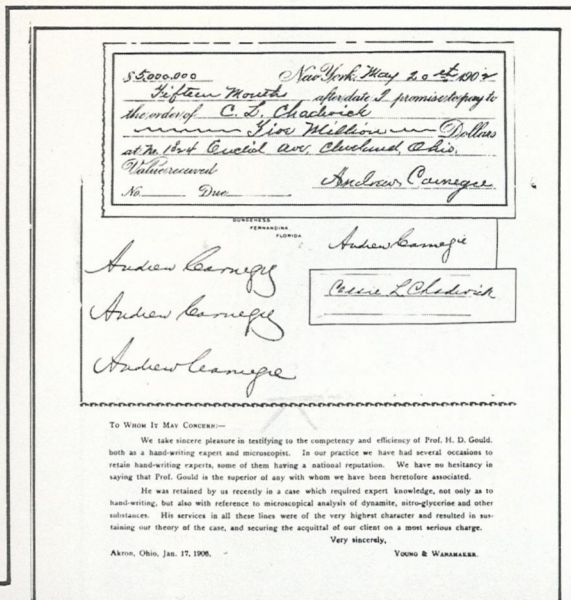 $5,000,000 New York, May 20th 1902
Fifteen Months after date I promise to pay to
the order of C. L. Chadwick
Five Million Dollars
at No. 1824 Euclid Ave, Cleveland, Ohio.
Value received
No. Due Andrew Carnegie
DUNGENESS
FERNANDINA
FLORIDA
Andrew Carnegie
Andrew Carnegie
Cassie L Chadwick
Andrew Carnegie
Andrew Carnegie
TO WHOM IT MAY CONCERN:—
We take sincere pleasure in testifying to the competency and efficiency of Prof. H. D. Gould.
both as a hand-writing expert and microscopist. In our practice we have had several occasions to
retain hand-writing experts, some of them having a national reputation. We have no hesitancy in
saying that Prof. Gould is the superior of any with whom we have been heretofore associated.
He was retained by us recently in a case which required expert knowledge, not only as to
hand-writing, but also with reference to microscopical analysis of dynamite, nitro-glycerine and other
substances. His services in all these lines were of the very highest character and resulted in sus-
taining our theory of the case, and securing the acquittal of our client on a most serious charge.
Very sincerely,
Akron, Ohio, Jan. 17, 1906. YOUNG & WANAMAKER.